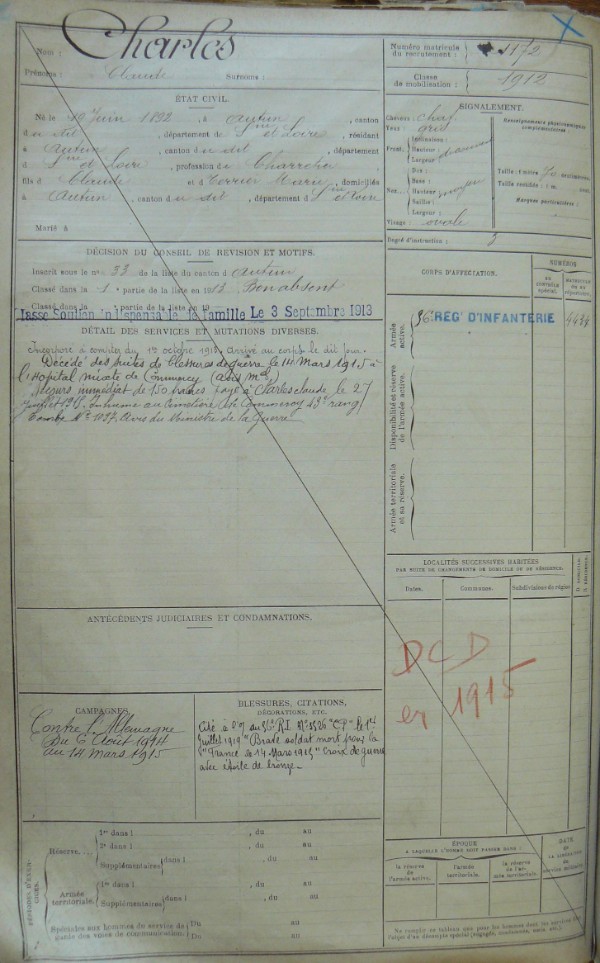 Nom : Charles
Prénoms : Claude Surnoms :
ÉTAT CIVIL.
Né le 19 Juin 1892, à Autun, canton
du dit, département de Sne et Loire, résidant
à Autun, canton du dit, département
d Sne et Loire, profession de
fils de Claude et de Terrier Marie, domiciliés
à Autun, canton du dit, département de Sne et Loire
Marié à
DÉCISION DU CONSEIL DE RÉVISION ET MOTIFS.
Inscrit sous le no 33 de la liste du canton d'Autun
Classé dans la 1e partie de la liste en 1913 Bon absent
Classé dans la partie de la liste en 19
Classé Soutien indispensable de famille Le 3 Septembre 1913
DÉTAIL DES SERVICES ET MUTATIONS DIVERSES.
Incorporé à compter du 1er octobre 1913. Arrivé au corps le dit jour.
Décédé des suites de blessures de guerre le 14 mars 1915 à
l'Hopital mixte de Commercy
Secours immédiat de 150 francs payé à Charles Claude le 27
juillet 1915. Inhumé au Cimetière de Commercy 43e rang
Tombe No 1197. Avis du Ministre de la Guerre
ANTÉCÉDENTS JUDICIAIRES ET CONDAMNATIONS.
CAMPAGNES.
Contre l'Allemagne
du 2 Août 1914
au 14 mars 1915
BLESSURES, CITATIONS,
DÉCORATIONS, ETC.
Cité à l'O/ du 56e R.I. No 3326 "CP" le 1er
juillet 1919 "Brave soldat mort pour la
"France le 14 Mars 1915" Croix de guerre
avec étoile de bronze.
PÉRIODES D'EXERCICES.
Réserve....
1re dans l , du au
2e dans l , du au
Supplémentaires dans l , du au
, du au
Armée territoriale.
1re dans l , du au
Supplémentaires dans l , du au
, du au
Spéciales aux hommes du service de garde des voies de communication.
Du au
Du au
Numéro matricule du recrutement : 1172
Classe de mobilisation : 1912
SIGNALEMENT.
Cheveux : chat
Yeux : gris
Front. Inclinaison :
Hauteur :
Largeur :
Nez... Dos :
Base :
Hauteur : moyen
Saillie :
Largeur :
Visage : ovale
Renseignements physionomiques complémentaires :
Taille : 1 mètre 70 centimètres.
Taille rectifiée : 1 m. cent.
Marques particulières :
Degré d'instruction : 3
CORPS D'AFFECTATION.
NUMÉROS
au contrôle spécial.
matricule ou au répertoire
Armée active.
56e REG' D'INFANTERIE 4434
Disponibilité et réserve de l'armée active.
Armée territoriale et sa réserve.
LOCALITÉS SUCCESSIVES HABITÉES
PAR SUITE DE CHANGEMENTS DE DOMICILE OU DE RÉSIDENCE.
Dates. Communes. Subdivisions de région
D. DOMICILE
R. RÉSIDENCE.
DCD
en 1915
ÉPOQUE
À LAQUELLE L'HOMME DOIT PASSER DANS :
la réserve de l'armée active.
l'armée territoriale.
la réserve de l'armée territoriale.
DATE
de
LA LIBÉRATION
du
service militaire.